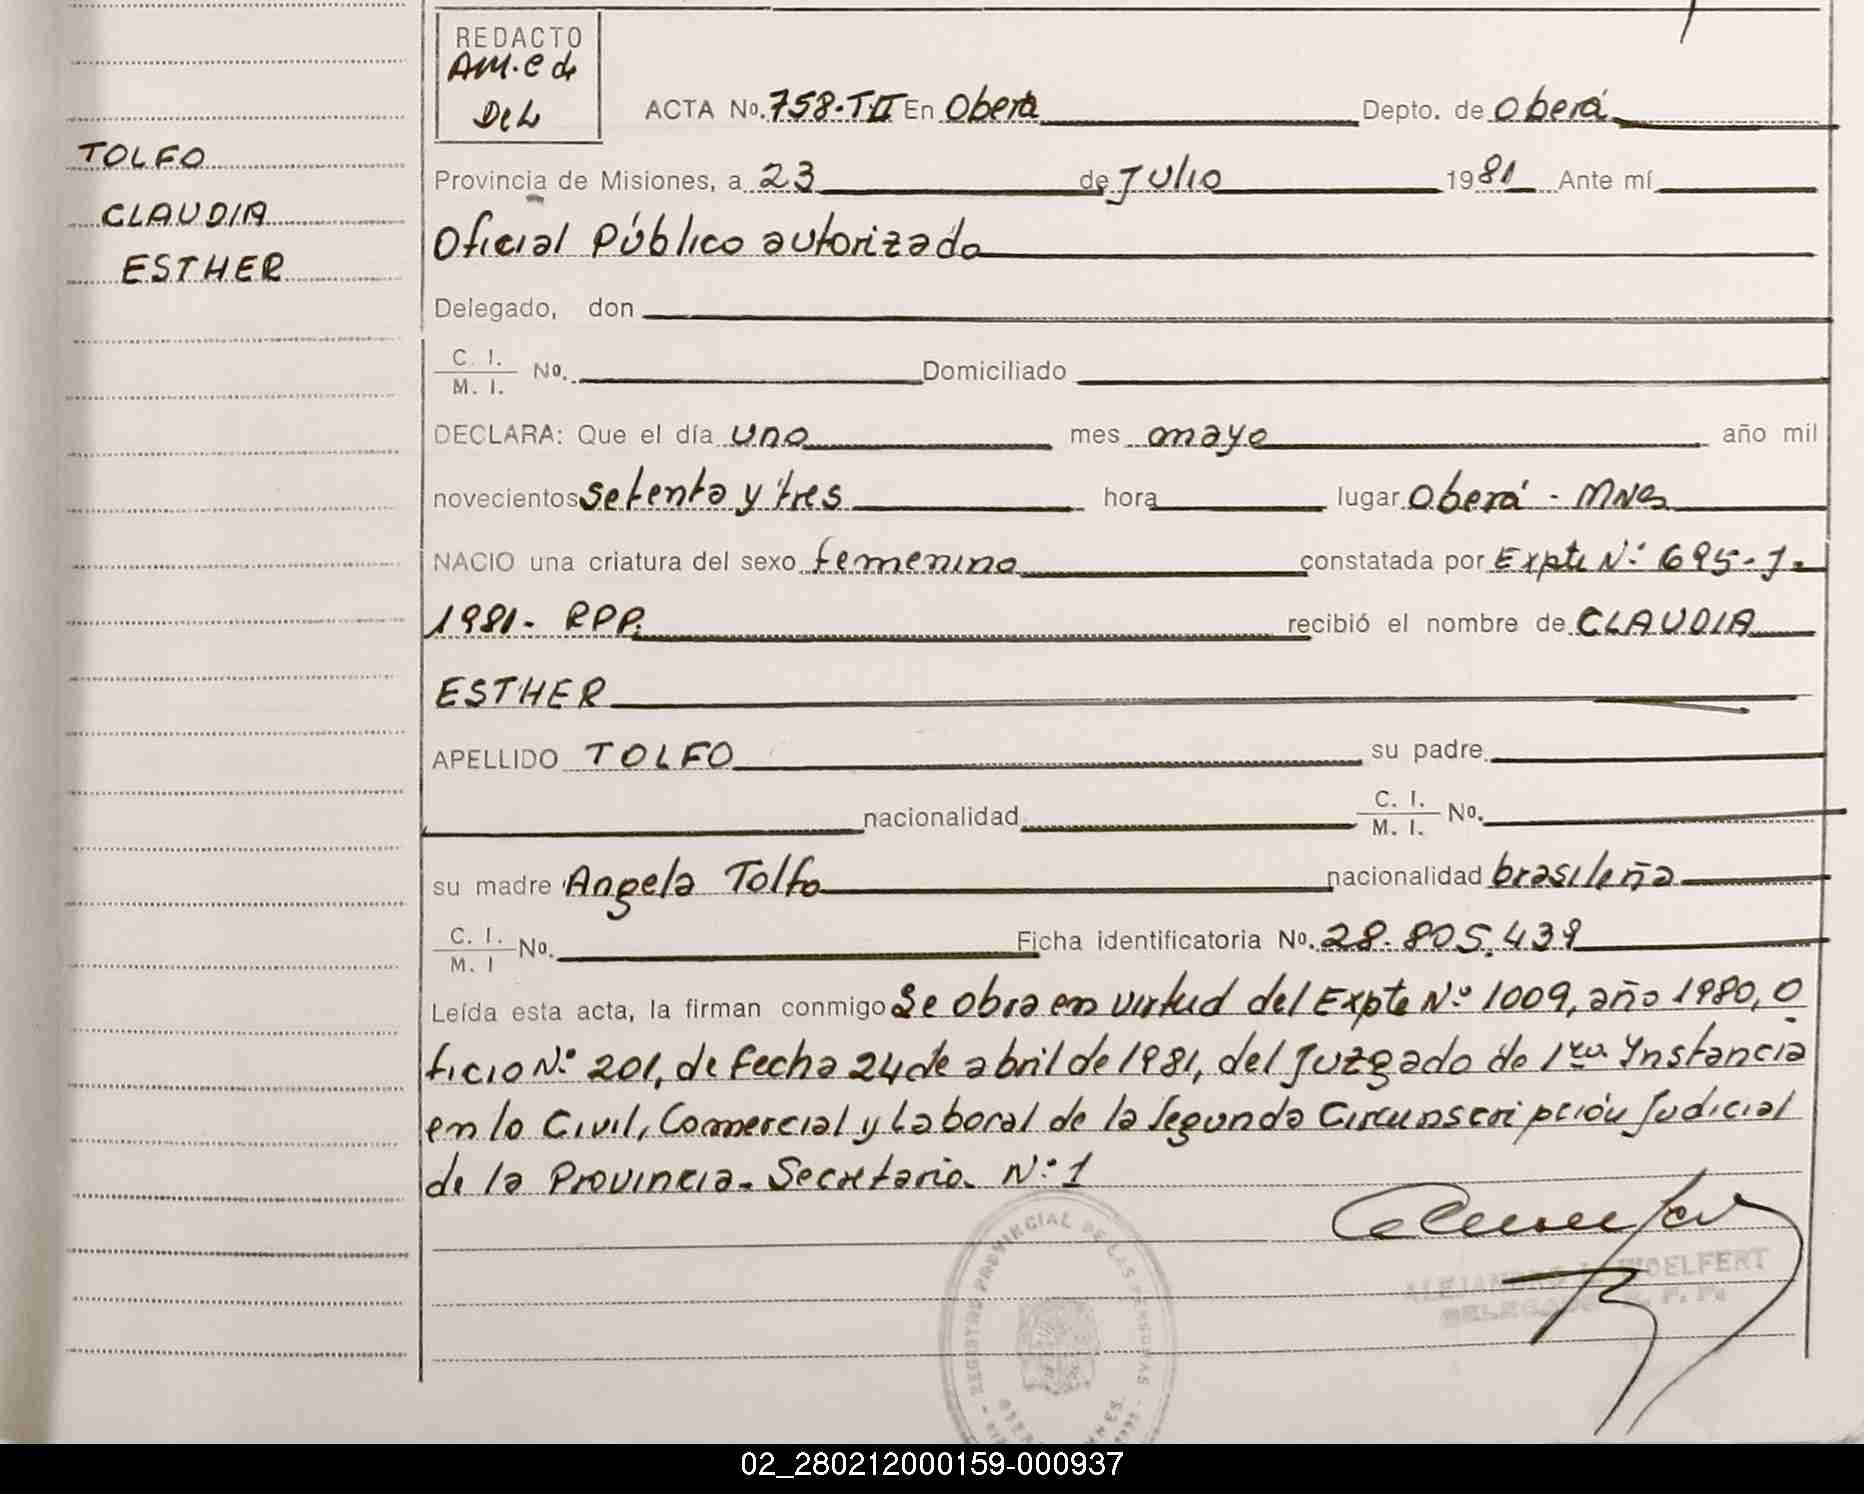 REDACTO
AM. C de
DeL
ACTA No. 758-T-II En Oberá Depto. de Oberá
TOLFO
CLAUDIA
ESTHER
Provincia de Misiones, a 23 de Julio 1981 Ante mí
Oficial Público autorizado
Delegado, don
C. I.
M. I. No. Domiciliado
DECLARA: Que el día uno mes mayo año mil
novecientos setenta y tres hora lugar Oberá - MNES
NACIO una criatura del sexo femenino constatada por Expte Nº 695-J-
1981- RPP. recibió el nombre de CLAUDIA
ESTHER
APELLIDO TOLFO su padre
nacionalidad C. I.
M. I. No.
su madre Angela Tolfo nacionalidad brasileña
C. I.
M. I No. Ficha identificatoria No. 28.805.439
Leída esta acta, la firman conmigo Se obra en virtud del Expte Nº 1009, año 1980, O
ficio Nº 201, de fecha 24 de abril de 1981, del Juzgado de 1ra Instancia
en lo Civil, Comercial y Laboral de la Segunda Circunscripción Judicial
de la Provincia. Secretaria. Nº 1
REGISTRO PROVINCIAL DE LAS PERSONAS
ALEJANDRO WOELFERT
DELEGADO R. P. P.
02_280212000159-000937